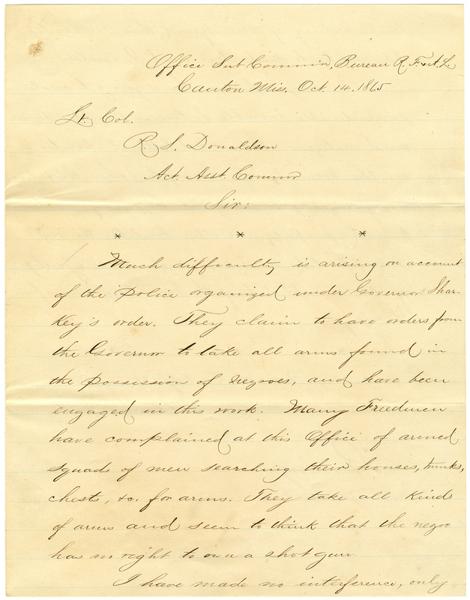 Office Sub Commis'r, Bureau R. F. & A. L.
Canton Miss. Oct. 14. 1865
Lt. Col.
R. S. Donaldson
Act. Asst. Commr
Sir:
* * *
Much difficulty is arising on account
of the Police organized under Governor Shar-
key's order. They claim to have orders from
the Governor to take all arms found in
the possession of negroes, and have been
engaged in this work. Many Freedmen
have complained at this Office of armed
squads of men searching their houses, trunks,
chests, &c. for arms. They take all kinds
of arms and seem to think that the negro
has no right to own a shot gun.
I have made no interference, only